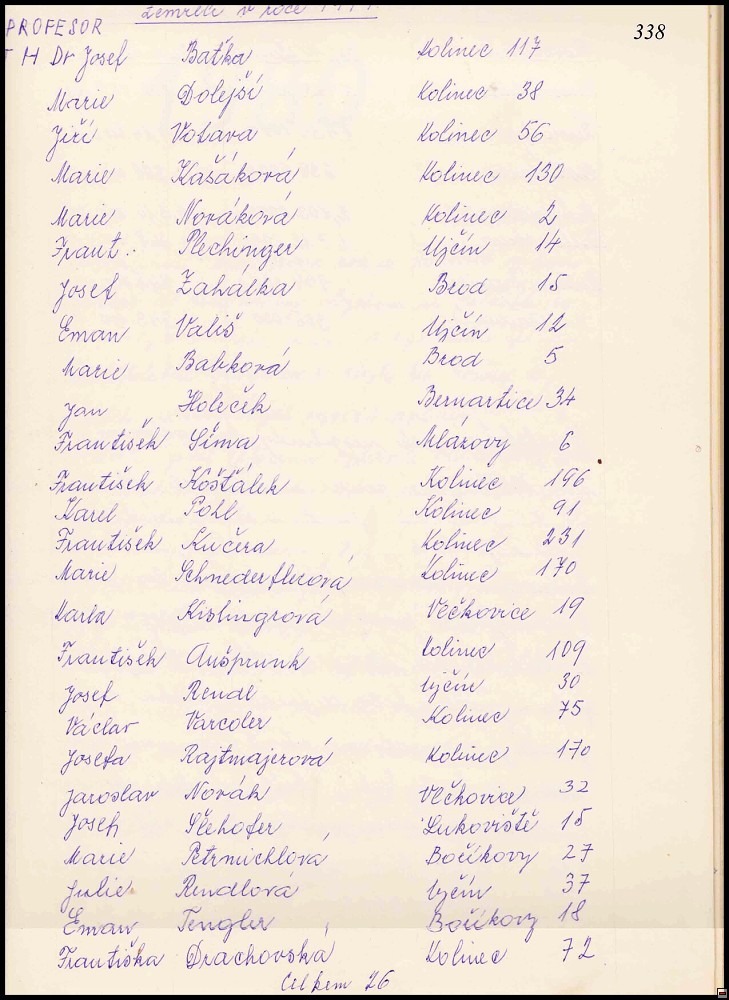 Zemřelí v roce
338
PROFESOR
H Dr Josef Baťka Kolinec 117
Marie Dolejší Kolinec 38
Jiří Votava Kolinec 56
Marie Kašáková Kolinec 130
Marie Nováková Kolinec 2
Frant. Plechinger Ujčín 14
Josef Zahálka Brod 15
Eman Vališ Ujčín 12
Marie Babková Brod 5
Jan Holeček Bernartice 34
František Šíma Mlázovy 6
František Košťálek Kolinec 196
Karel Pohl Kolinec 91
František Kučera Kolinec 231
Marie Kolinec 170
Karla Kislingrová Vlčkovice 19
František Aušprunk Kolinec 109
Josef Rendl Ujčín 30
Václav Varcoler Kolinec 75
Josefa Rajtmajerová Kolinec 170
Jaroslav Novák Vlčkovice 32
Josef Šlehofer Lukoviště 15
Marie Petrmichlová Bočíkovy 27
Julie Rendlová Ujčín 37
Eman Tengler Bočíkovy 18
Františka Drachovská Kolinec 72
Celkem 26